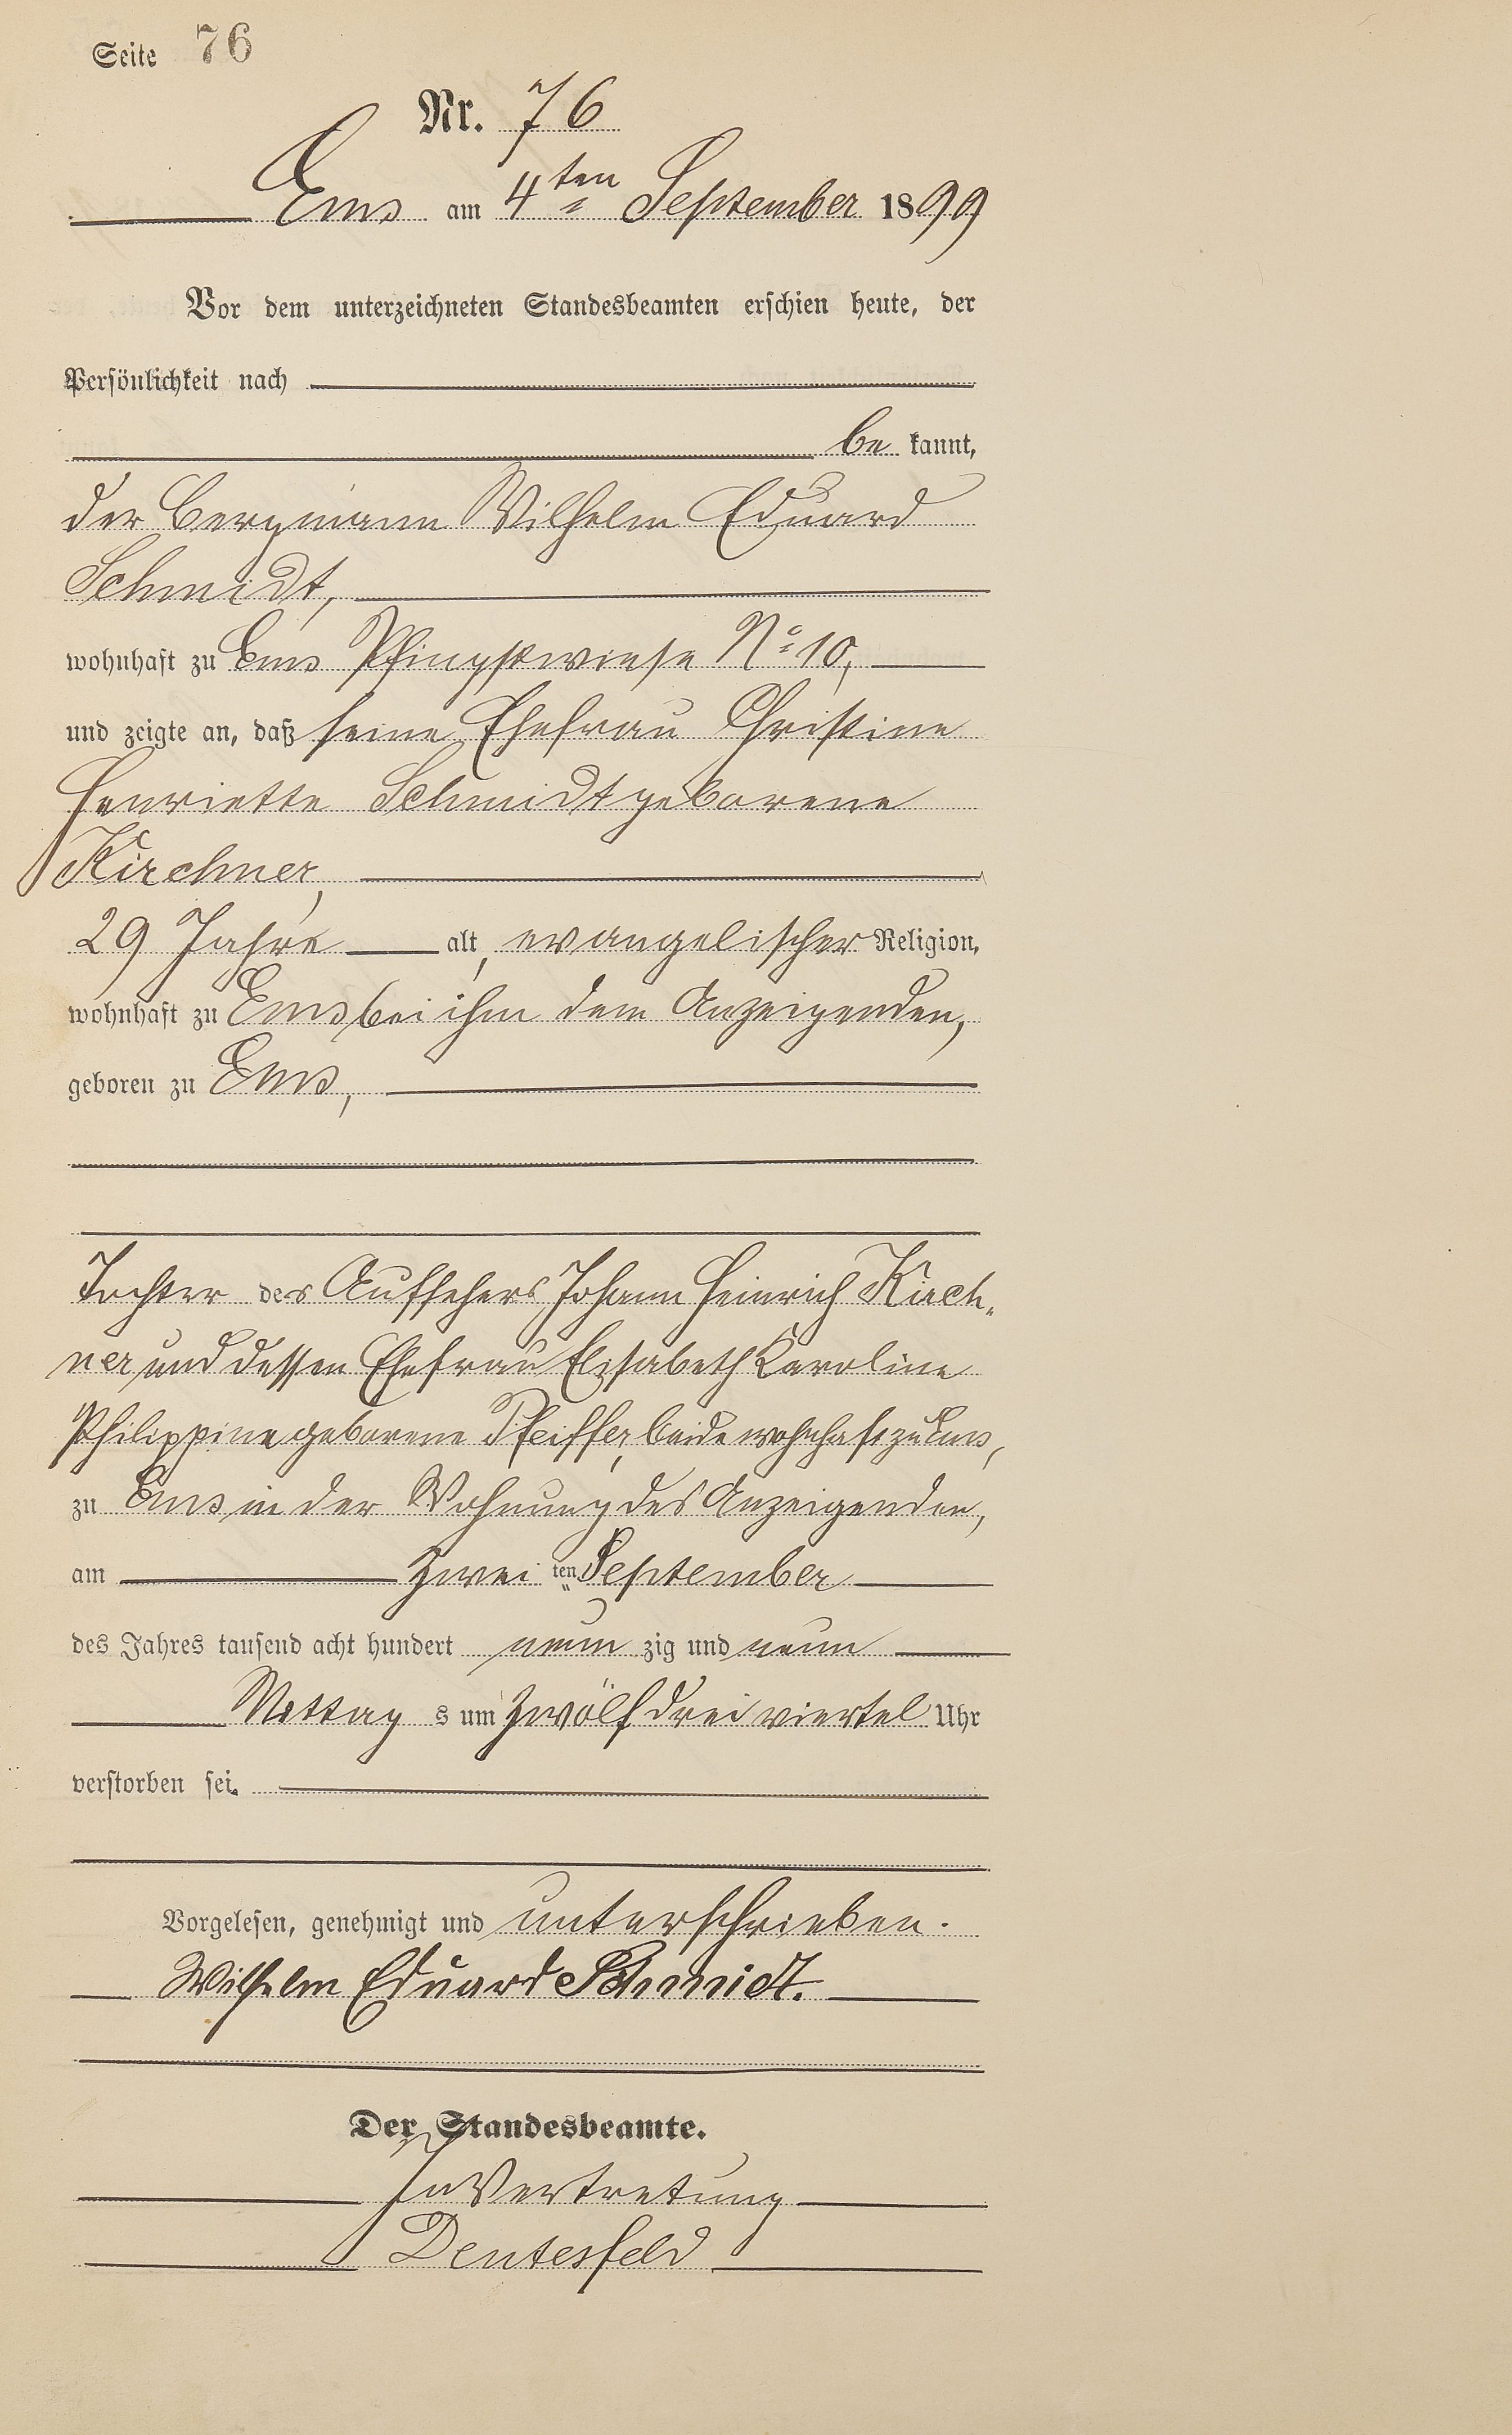 Seite 76
Nr. 76
Ems am 4ten September 1899
Vor dem unterzeichneten Standesbeamten erschien heute, der
Persönlichkeit nach
be kannt,
der Bergmann Wilhelm Eduard
Schmidt,
wohnhaft zu Ems Pfingstwiese No 10,
und zeigte an, daß seine Ehefrau Christine
Henriette Schmidt geborene
Kirchner,
29 Jahre alt, evangelischer Religion,
wohnhaft zu Ems bei ihm dem Anzeigenden,
geboren zu Ems,
Tochter des Aufsehers Johann Heinrich Kirch-
ner und dessen Ehefrau Elisabeth Karoline
Philippine geborene Pfeiffer, beide wohnhaft zu Ems,
zu Ems in der Wohnung des Anzeigenden,
am Zwei ten September
des Jahres tausend acht hundert neun zig und neun
Mittag s um Zwölf drei viertel Uhr
verstorben sei.
Vorgelesen, genehmigt und unterschrieben.
Wilhelm Eduard Schmidt.
Der Standesbeamte.
In Vertretung